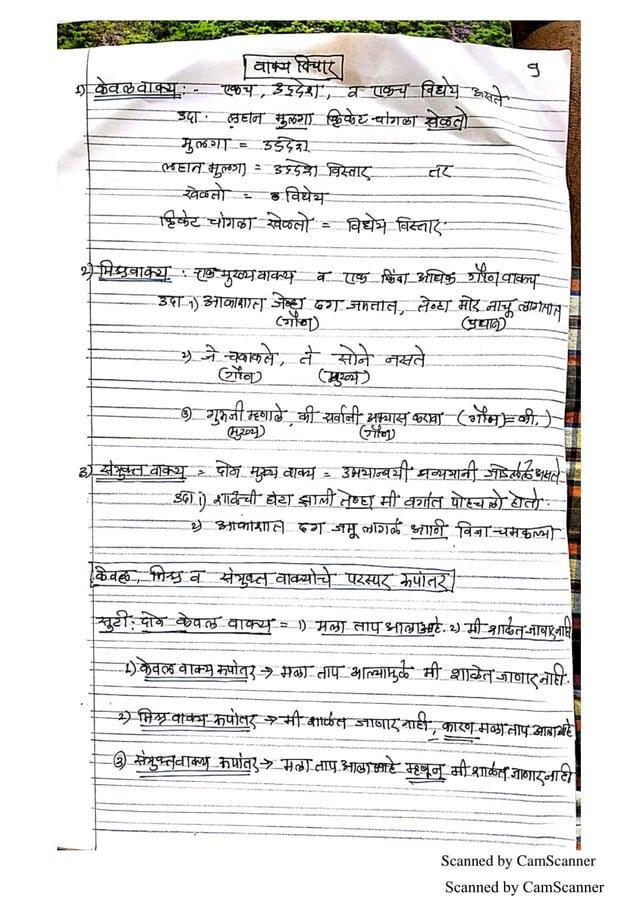 वाक्य विचार
१
१) केवलवाक्य :- एकच उद्देश, व एकच विधेय असते
उदा. लहान मुलगा क्रिकेट चांगला खेळतो
मुलगा = उद्देश
लहान मुलगा = उद्देश विस्तार तर
खेळतो = विधेय
क्रिकेट चांगला खेळतो = विधेय विस्तार
२) मिश्रवाक्य : एक मुख्य वाक्य व एक किंवा अधिक गौण वाक्य
उदा १) आकाशात जेव्हा ढग जमतात, तेव्हा मोर नाचू लागतात
(गौण) (प्रधान)
२) जे चकाकते, ते सोने नसते
(गौण) (मुख्य)
३) गुरुजी म्हणाले, की सर्वांनी अभ्यास करावा (गौण = की,)
(मुख्य) (गौण)
३) संयुक्त वाक्य = दोन मुख्य वाक्य = उभयान्वयी अव्ययांनी जोडलेले असते
उदा १) शाळेची घंटा झाली तेव्हा मी वर्गात पोहचलो होतो.
२) आकाशात ढग जमू लागले आणि विजा चमकल्या
केवळ, मिश्र व संयुक्त वाक्यांचे परस्पर रूपांतर
सुटी: दोन केवल वाक्य = १) मला ताप आला आहे. २) मी शाळेत जाणार नाही
१) केवळ वाक्य रूपांतर → मला ताप आल्यामुळे मी शाळेत जाणार नाही.
२) मिश्र वाक्य रूपांतर → मी शाळेत जाणार नाही, कारण मला ताप आला आहे
३) संयुक्तवाक्य रूपांतर → मला ताप आला आहे म्हणून मी शाळेत जाणार नाही
Scanned by CamScanner
Scanned by CamScanner